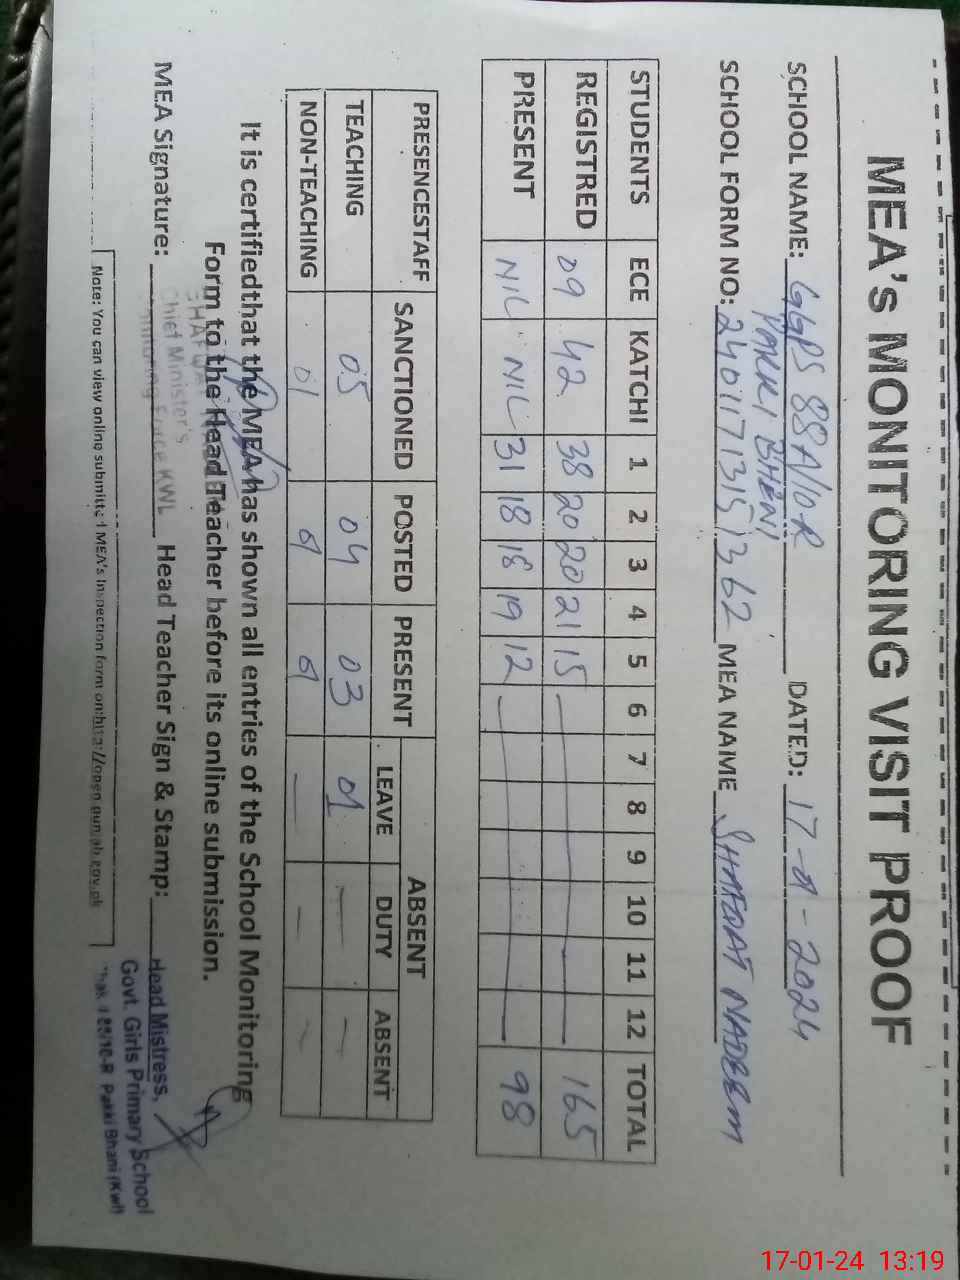 MEA's MONITORING VISIT PROOF
SCHOOL NAME: GGPS 88A/10R DATED: 17-01-2024
PAKKI BHENI
SCHOOL FORM NO: MEA NAME SHAFQAT NADEEM
STUDENTS ECE KATCHI 1 2 3 4 5 6 7 8 9 10 11 12 TOTAL
REGISTRED 09 42 38 20 20 21 15 165
PRESENT NIL NIL 31 18 18 19 12 98
PRESENCESTAFF SANCTIONED POSTED PRESENT ABSENT
LEAVE DUTY ABSENT
TEACHING 05 04 03 01 — —
NON-TEACHING 01 — — —
It is certifiedthat the MEA has shown all entries of the School Monitoring
Form to the Head Teacher before its online submission.
SHAFQAT
Chief Minister's
Monitoring Force KWL
MEA Signature: Head Teacher Sign & Stamp:
Head Mistress,
Govt. Girls Primary School
Pakki Bhani (Kwl)
Note: You can view online submitted MEA's Inspection form on:http://open.punjab.gov.pk
17-01-24 13:19